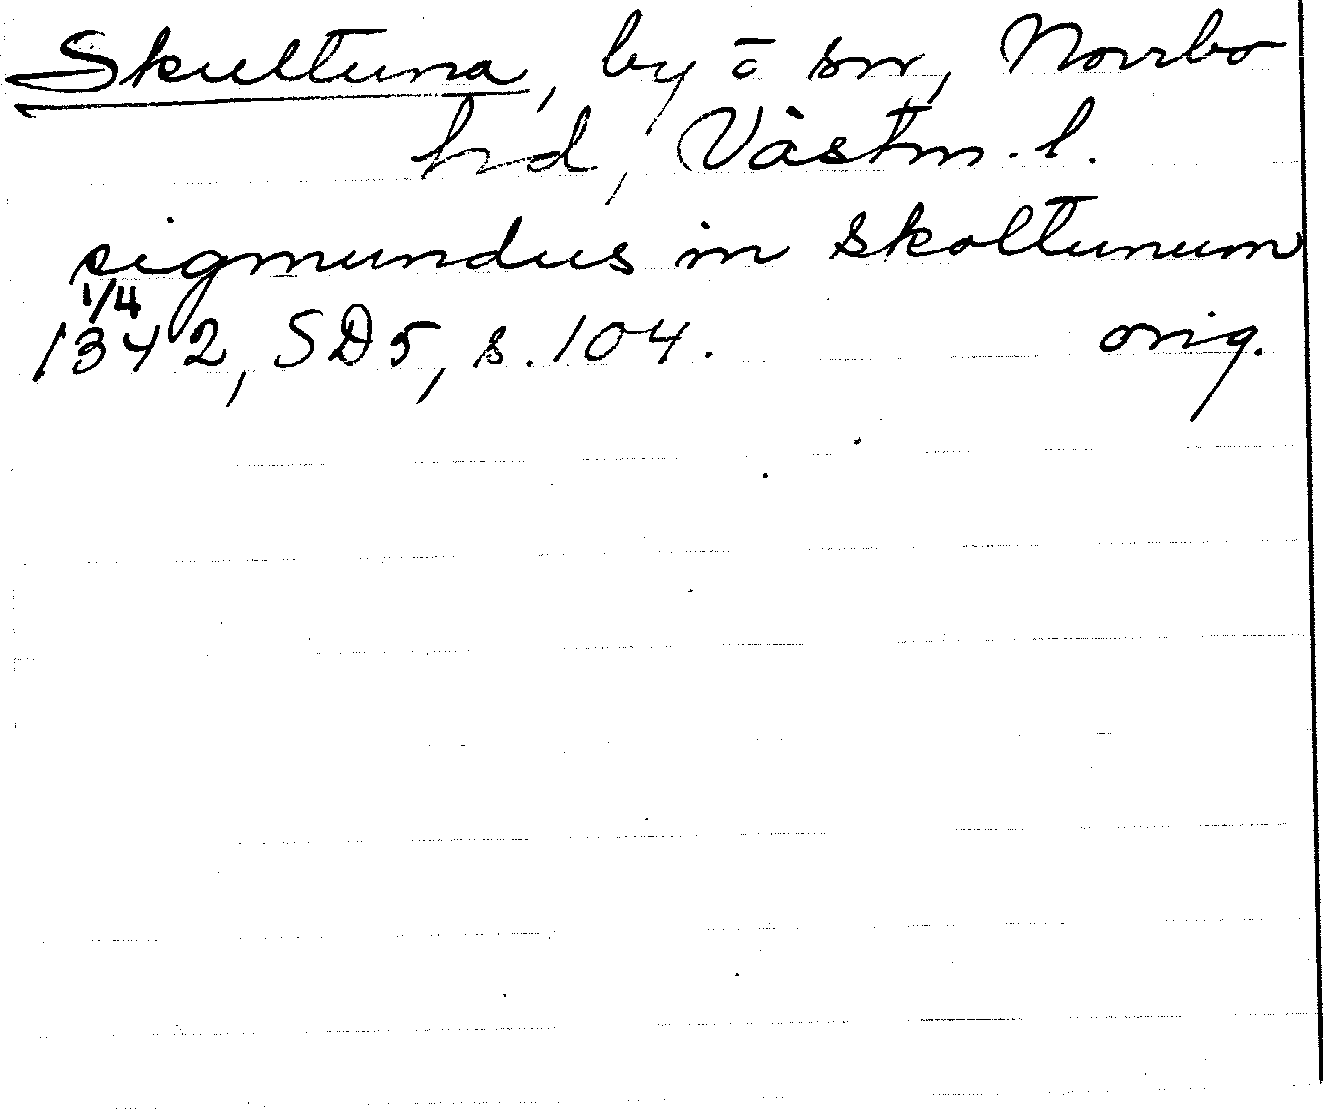 Skultuna, by ō sn, Norrbo
hd, Västm. l.
sigmundus in skoltunum
1/4
1342, SD5, s. 104. orig.